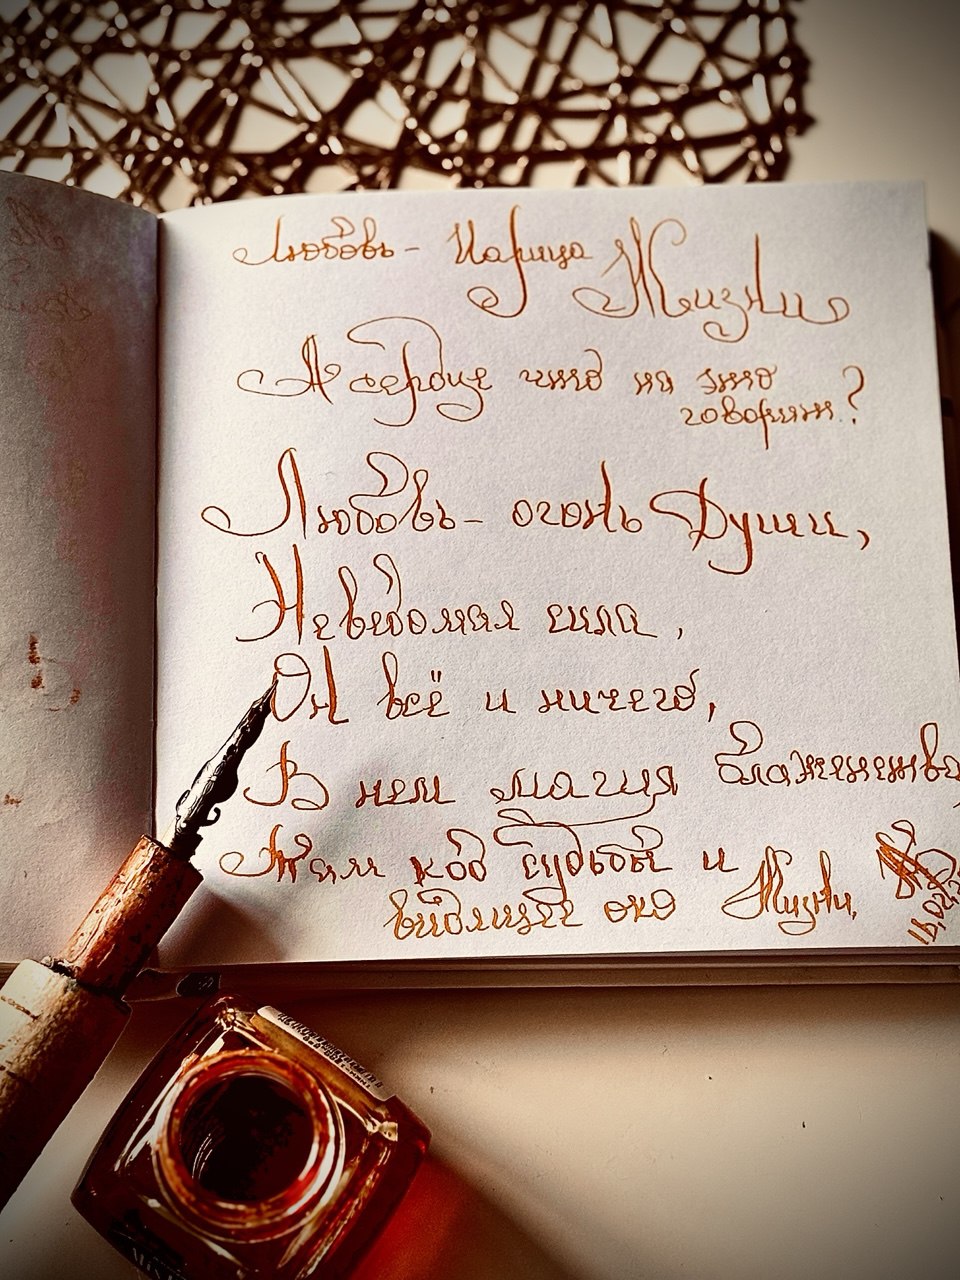 Любовь - Царица Жизни
А сердце что на это
говорит?
Любовь - огонь Души,
Неведомая сила,
Он всё и ничего,
В нем магия блаженства,
Там код судьбы и
видящее око Жизни.